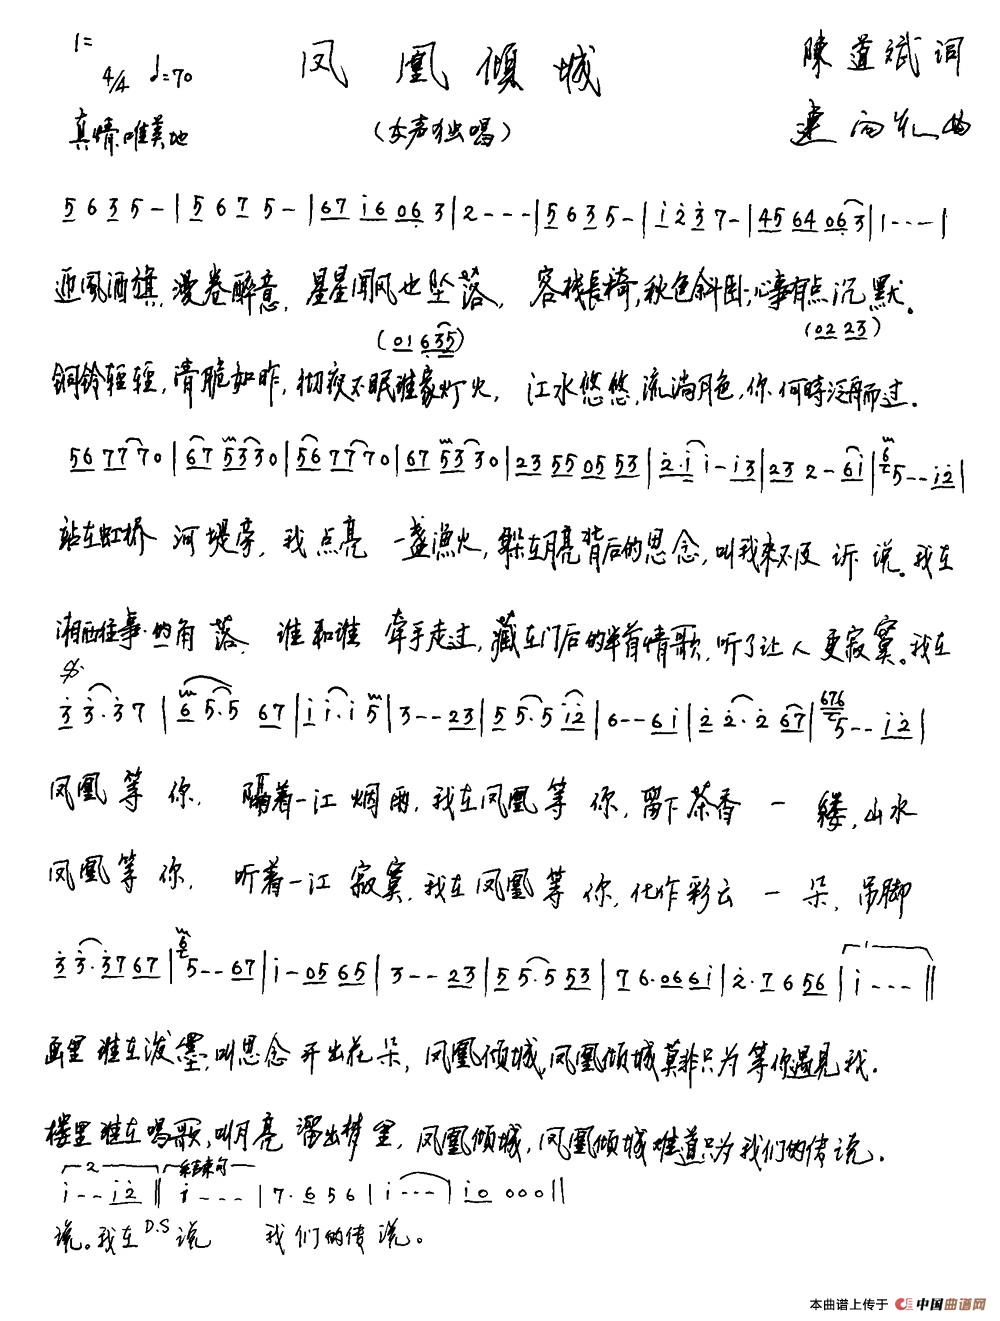 1=
4/4 ♩=70
凤凰倾城
陳道斌 词
真情、唯美地
(女声独唱)
曲
5 6 3 5 - | 5 6 7 5 - | 67 i6 06 3 | 2 - - - | 5 6 3 5 - | i 2 3 7 - | 45 64 06 3 | 1 - - - |
迎风酒旗,漫卷醉意,星星闻风也坠落,客栈長椅,秋色斜卧,心事有点沉默。
(01 635) (02 23)
铜铃轻轻,清脆如昨,彻夜不眠谁家灯火,江水悠悠,流淌月色,你何時泛舟而过.
56 77 70 | 67 53 30 | 56 77 70 | 67 53 30 | 23 55 05 53 | 2·i i - i3 | 23 2 - 6i | 6 5 - - i2 |
站在虹桥 河堤旁,我点亮 一盏漁火,躲在月亮背后的思念,叫我来不及 诉说。我在
湘西往事的角落 谁和谁 牵手走过,藏在门后的半首情歌,听了让人更寂寞。我在
3 3·3 7 | 6 5·5 67 | i i·i 5 | 3 - - 23 | 5 5·5 i2 | 6 - - 6i | 2 2·2 67 | 676 5 - - i2 |
凤凰等你, 隔着一江烟雨,我在凤凰等你,留下茶香一缕,山水
凤凰等你, 听着一江寂寞,我在凤凰等你,化作彩云一朵,吊脚
3 3·37 67 | 6 5 - - 67 | i - 05 65 | 3 - - 23 | 5 5·5 53 | 7 6·06 6i | 2·7 6 56 | 1 i - - - ||
画里谁在泼墨,叫思念开出花朵,凤凰倾城,凤凰倾城莫非只为等你遇见我.
楼里谁在唱歌,叫月亮溜出梦里,凤凰倾城,凤凰倾城难道只为我们的传说.
2 结束句
i - - i2 || i - - - | 7·6 5 6 | i - - - | i0 000 ||
说。我在 D.S 说 我们的传说。
本曲谱上传于 中国曲谱网